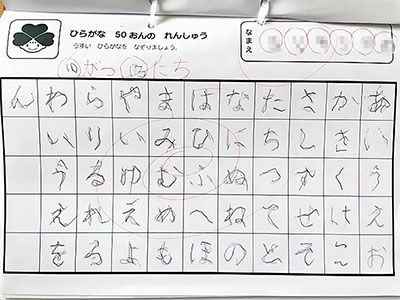 ひらがな 50おんの れんしゅう
うすい ひらがなを なぞりましょう。
なまえ
がつ
あいうえお
かきくけこ
さしすせそ
たちつてと
なにぬねの
はひふへほ
まみむめも
やいゆえよ
らりるれろ
わいうえを
ん